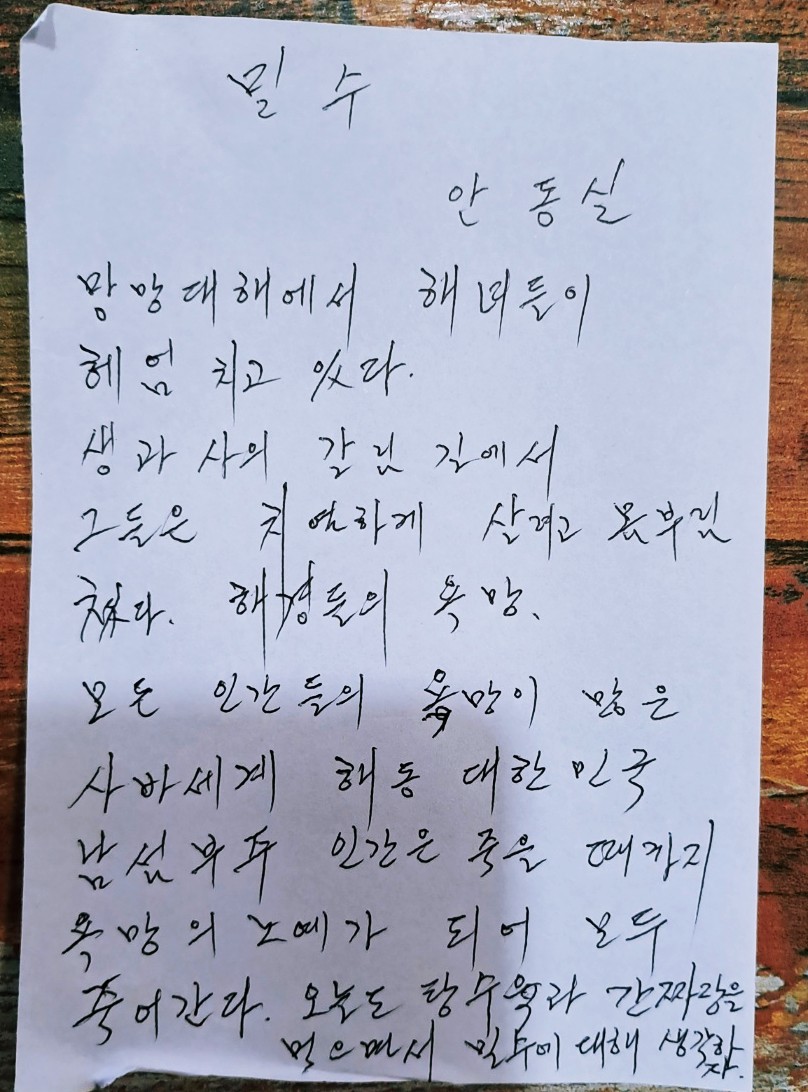 밀 수
안 동 실
망망대해에서 해녀들이
헤엄 치고 있다.
생과 사의 갈림 길에서
그들은 치열하게 살려고 몸부림
쳤다. 해경들의 욕망.
모든 인간들의 욕망이 많은
사바세계 해동 대한민국
남섬부주 인간은 죽을 때까지
욕망의 노예가 되어 모두
죽어간다. 오늘도 탕수육과 간짜장을
먹으면서 밀수에 대해 생각하자.